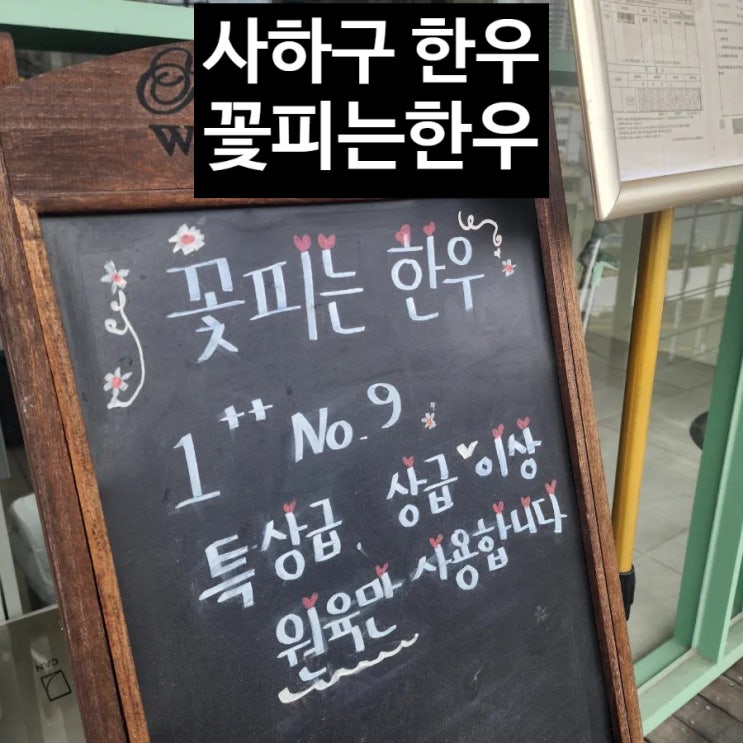 사하구 한우
꽃피는한우
W
꽃피는 한우
1++ No.9
특상급、상급이상
원육만 사용합니다
CAN